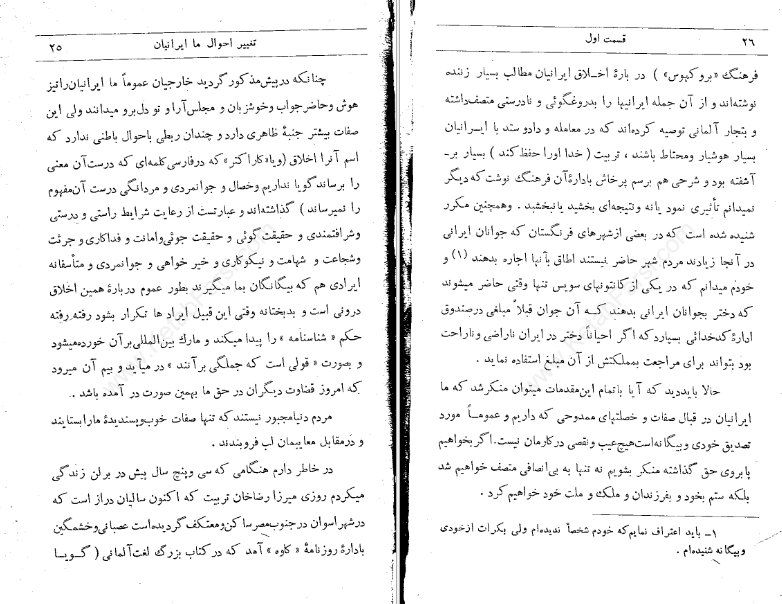 تغییر احوال ما ایرانیان ۲۵
چنانکه در پیش مذکور گردید خارجیان عموماً ما ایرانیان را تیز
هوش و حاضر جواب و خوشزبان و مجلس آرا و تو دل برو میدانند ولی این
صفات بیشتر جنبهٔ ظاهری دارد و چندان ربطی باحوال باطنی ندارد که
اسم آنرا اخلاق (ویا «کاراکتر» که در فارسی کلمه‌ای که درست آن معنی
را برساند گویا نداریم و خصال و جوانمردی و مردانگی درست آن مفهوم
را نمیرساند) گذاشته‌اند و عبارتست از رعایت شرایط راستی و درستی
و شرافتمندی و حقیقت گوئی و حقیقت جوئی و امانت و فداکاری و جرئت
و شجاعت و شهامت و نیکوکاری و خیر خواهی و جوانمردی و متأسفانه
ایرادی هم که بیگانگان بما میگیرند بطور عموم دربارهٔ همین اخلاق
درونی است و بدبختانه وقتی این قبیل ایراد ها تکرار بشود رفته رفته
حکم «شناسنامه» را پیدا میکند و مارك بین‌المللی بر آن خورده میشود
و بصورت «قولی است که جملگی برآنند» در میآید و بیم آن میرود
که امروز قضاوت دیگران در حق ما بهمین صورت در آمده باشد .
مردم دنیا مجبور نیستند که تنها صفات خوب و پسندیدهٔ ما را بستایند
و در مقابل معایبمان لب فروبندند .
در خاطر دارم هنگامی که سی و پنج سال پیش در برلن زندگی
میکردم روزی میرزا رضاخان تربیت که اکنون سالیان دراز است که
در شهر اسوان در جنوب مصر ساکن و معتکف گردیده است عصبانی و خشمگین
بادارهٔ روزنامهٔ «کاوه» آمد که در کتاب بزرگ لغت آلمانی ( گویا
۲۶ قسمت اول
فرهنگ «بروکهوس» ) در بارهٔ اخلاق ایرانیان مطالب بسیار زننده
نوشته‌اند و از آن جمله ایرانیها را بدروغگوئی و نادرستی متصف داشته
و بتجار آلمانی توصیه کرده‌اند که در معامله و دادو ستد با ایرانیان
بسیار هوشیار و محتاط باشند ، تربیت ( خدا اورا حفظ کند ) بسیار بر-
آشفته بود و شرحی هم برسم پرخاش بادارهٔ آن فرهنگ نوشت که دیگر
نمیدانم تأثیری نمود یا نه و نتیجه‌ای بخشید یا نبخشید . وهمچنین مکرر
شنیده شده است که در بعضی از شهرهای فرنگستان که جوانان ایرانی
در آنجا زیادند مردم شهر حاضر نیستند اطاق بآنها اجاره بدهند (۱) و
خودم میدانم که در یکی از کانتونهای سویس تنها وقتی حاضر میشوند
که دختر بجوانان ایرانی بدهند که آن جوان قبلاً مبلغی در صندوق
ادارهٔ کدخدائی بسپارد که اگر احیاناً دختر در ایران ناراضی و ناراحت
بود بتواند برای مراجعت بمملکتش از آن مبلغ استفاده نماید .
حالا باید دید که آیا با تمام این مقدمات میتوان منکر شد که ما
ایرانیان در قبال صفات و خصلتهای ممدوحی که داریم و عموماً مورد
تصدیق خودی و بیگانه است هیچ عیب و نقصی در کارمان نیست. اگر بخواهیم
پا بروی حق گذاشته منکر بشویم نه تنها به بی‌انصافی متصف خواهیم شد
بلکه ستم بخود و بفرزندان و ملك و ملت خود خواهیم کرد .
۱- باید اعتراف نمایم که خودم شخصاً ندیده‌ام ولی بکرات از خودی
و بیگانه شنیده‌ام .